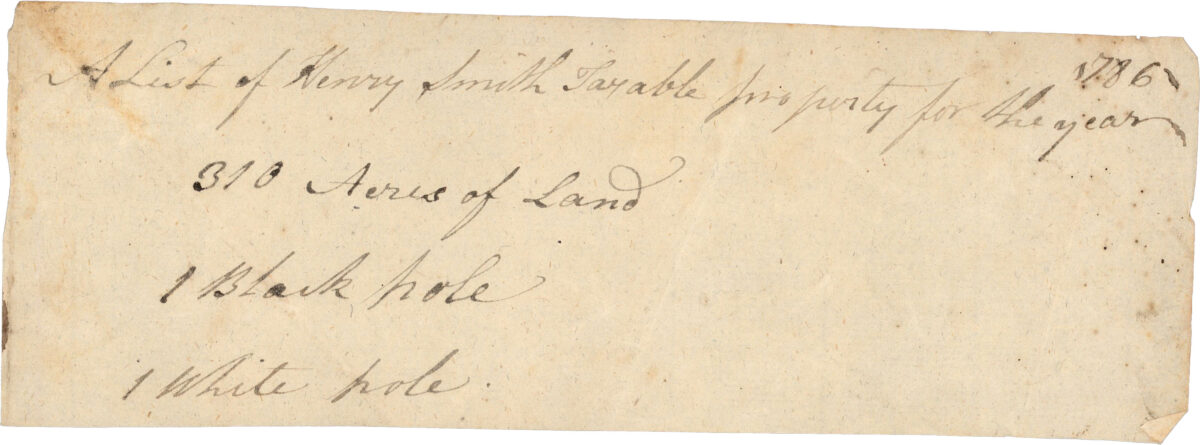 A List of Henry Smith Taxable property for the year 1786
310 Acres of Land
1 Black pole
1 White pole.